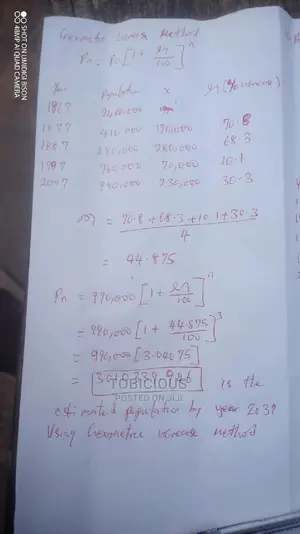 SHOT ON UMIDIGI BISON
48MP AI QUAD CAMERA
Geometric increase Method
Pn = Po [1+ r/100]^n
Year Population x r (% increase)
1967 240,000
1977 410,000 170,000 70.8
1987 690,000 280,000 68.3
1997 760,000 70,000 10.1
2007 990,000 230,000 30.3
= 70.8 + 68.3 + 10.1 + 30.3
4
= 44.875
Pn = 990,000 [1 + r/100]^n
= 990,000 [1 + 44.875/100]^3
= 990,000 [3.04075]
= is the
estimated population by year 2037
Using Geometric increase method
TOBICIOUS
POSTED ON JIJI